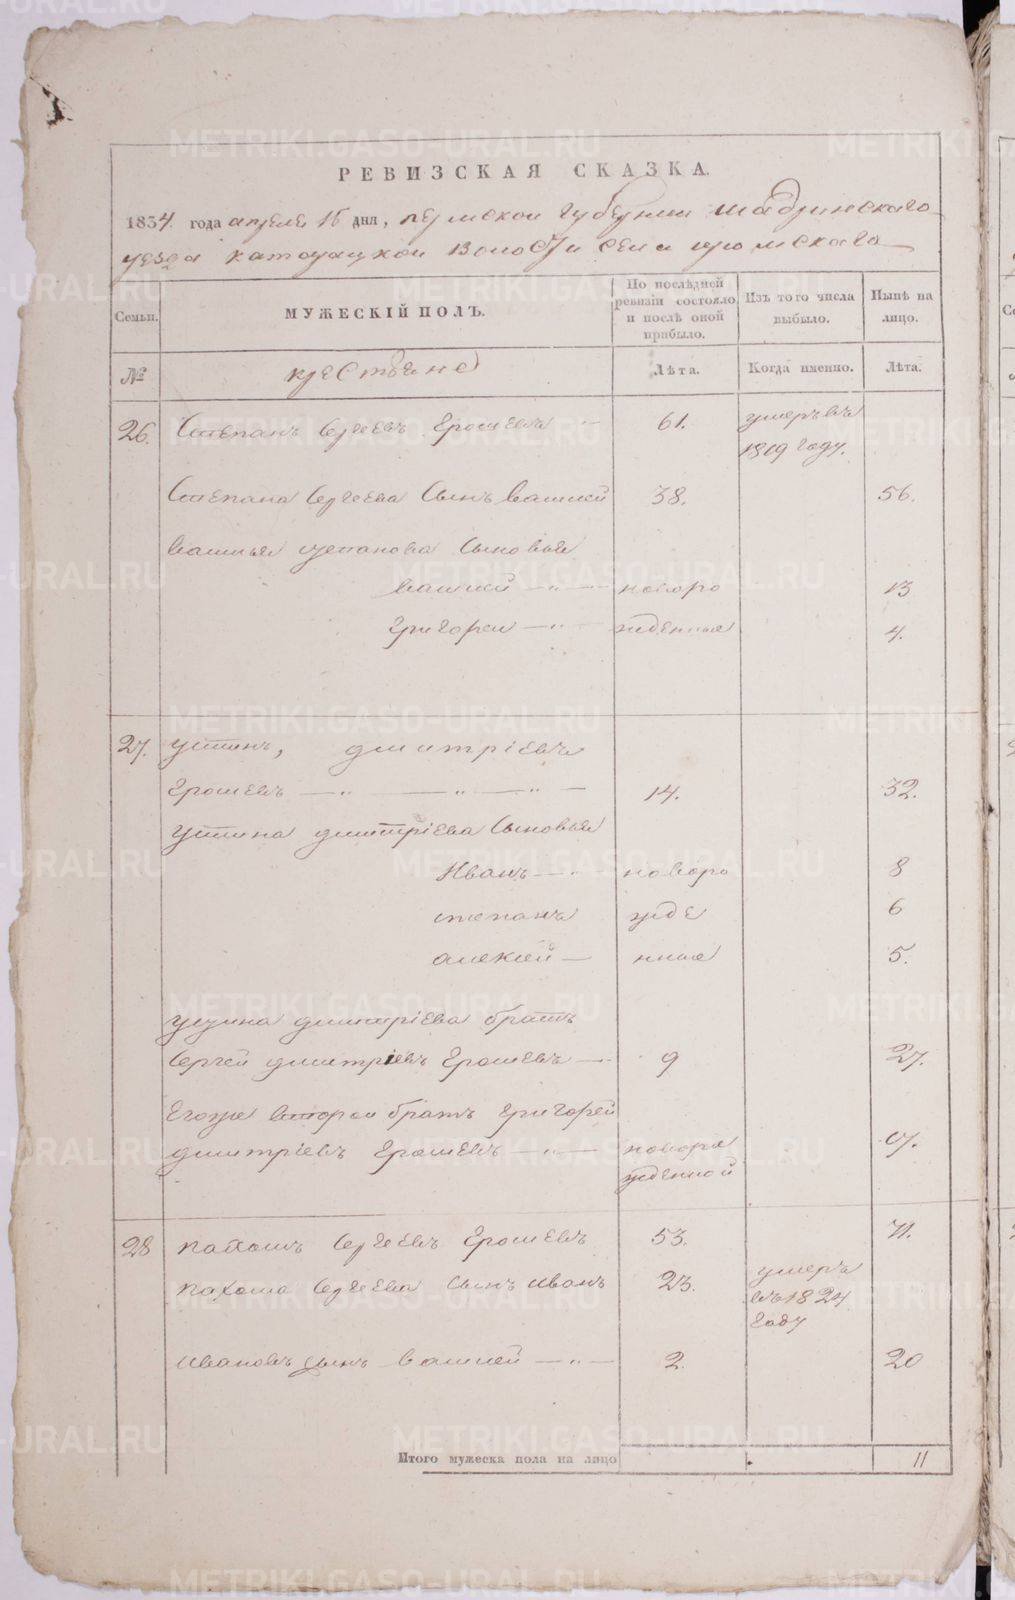 РЕВИЗСКАЯ СКАЗКА.
1834. года апреле 15 дня, пермской губернии Шадринскаго
уезда катайцкой волости села
Семьи.
МУЖЕСКІЙ ПОЛЪ.
По послѣдней ревизіи состояло, и послѣ оной прибыло.
Изъ того числа выбыло.
Нынѣ на лицо.
№
крестьяне
Лѣта.
Когда именно.
Лѣта.
26. Степанъ Сергеевъ Ерошевъ 61. умеръ въ
1819 году.
Степана Сергеева Сынъ Василей 38. 56.
Василья степанова Сыновья
василей — „ — новоро 13
Григореи — „ жденные 4.
27. устинъ, дмитріевъ
Ерошевъ — „ — „ — „ — 14. 32.
устина дмитріева Сыновья
Иванъ — „ новоро 8
степанъ жде 6
алексей — нные 5.
устина дмитріева братъ
Сергей дмитріевъ Ерошевъ — 9 27.
Егоже второи братъ Григорей
дмитріевъ Ерошевъ — „ — новоро
жденной
28 пахомъ Сергеевъ Ерошевъ 53. 71.
пахома Сергеева Сынъ иванъ 23. умеръ
въ 1824
Году
ивановъ сынъ василей — „ — 2. 20
Итого мужеска пола на лицо 11
METRIKI.GASO-URAL.RU